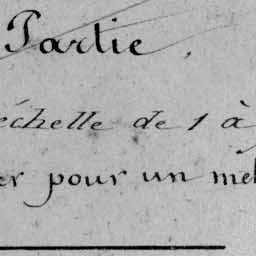 Partie
échelle de 1 à
er pour un mèt